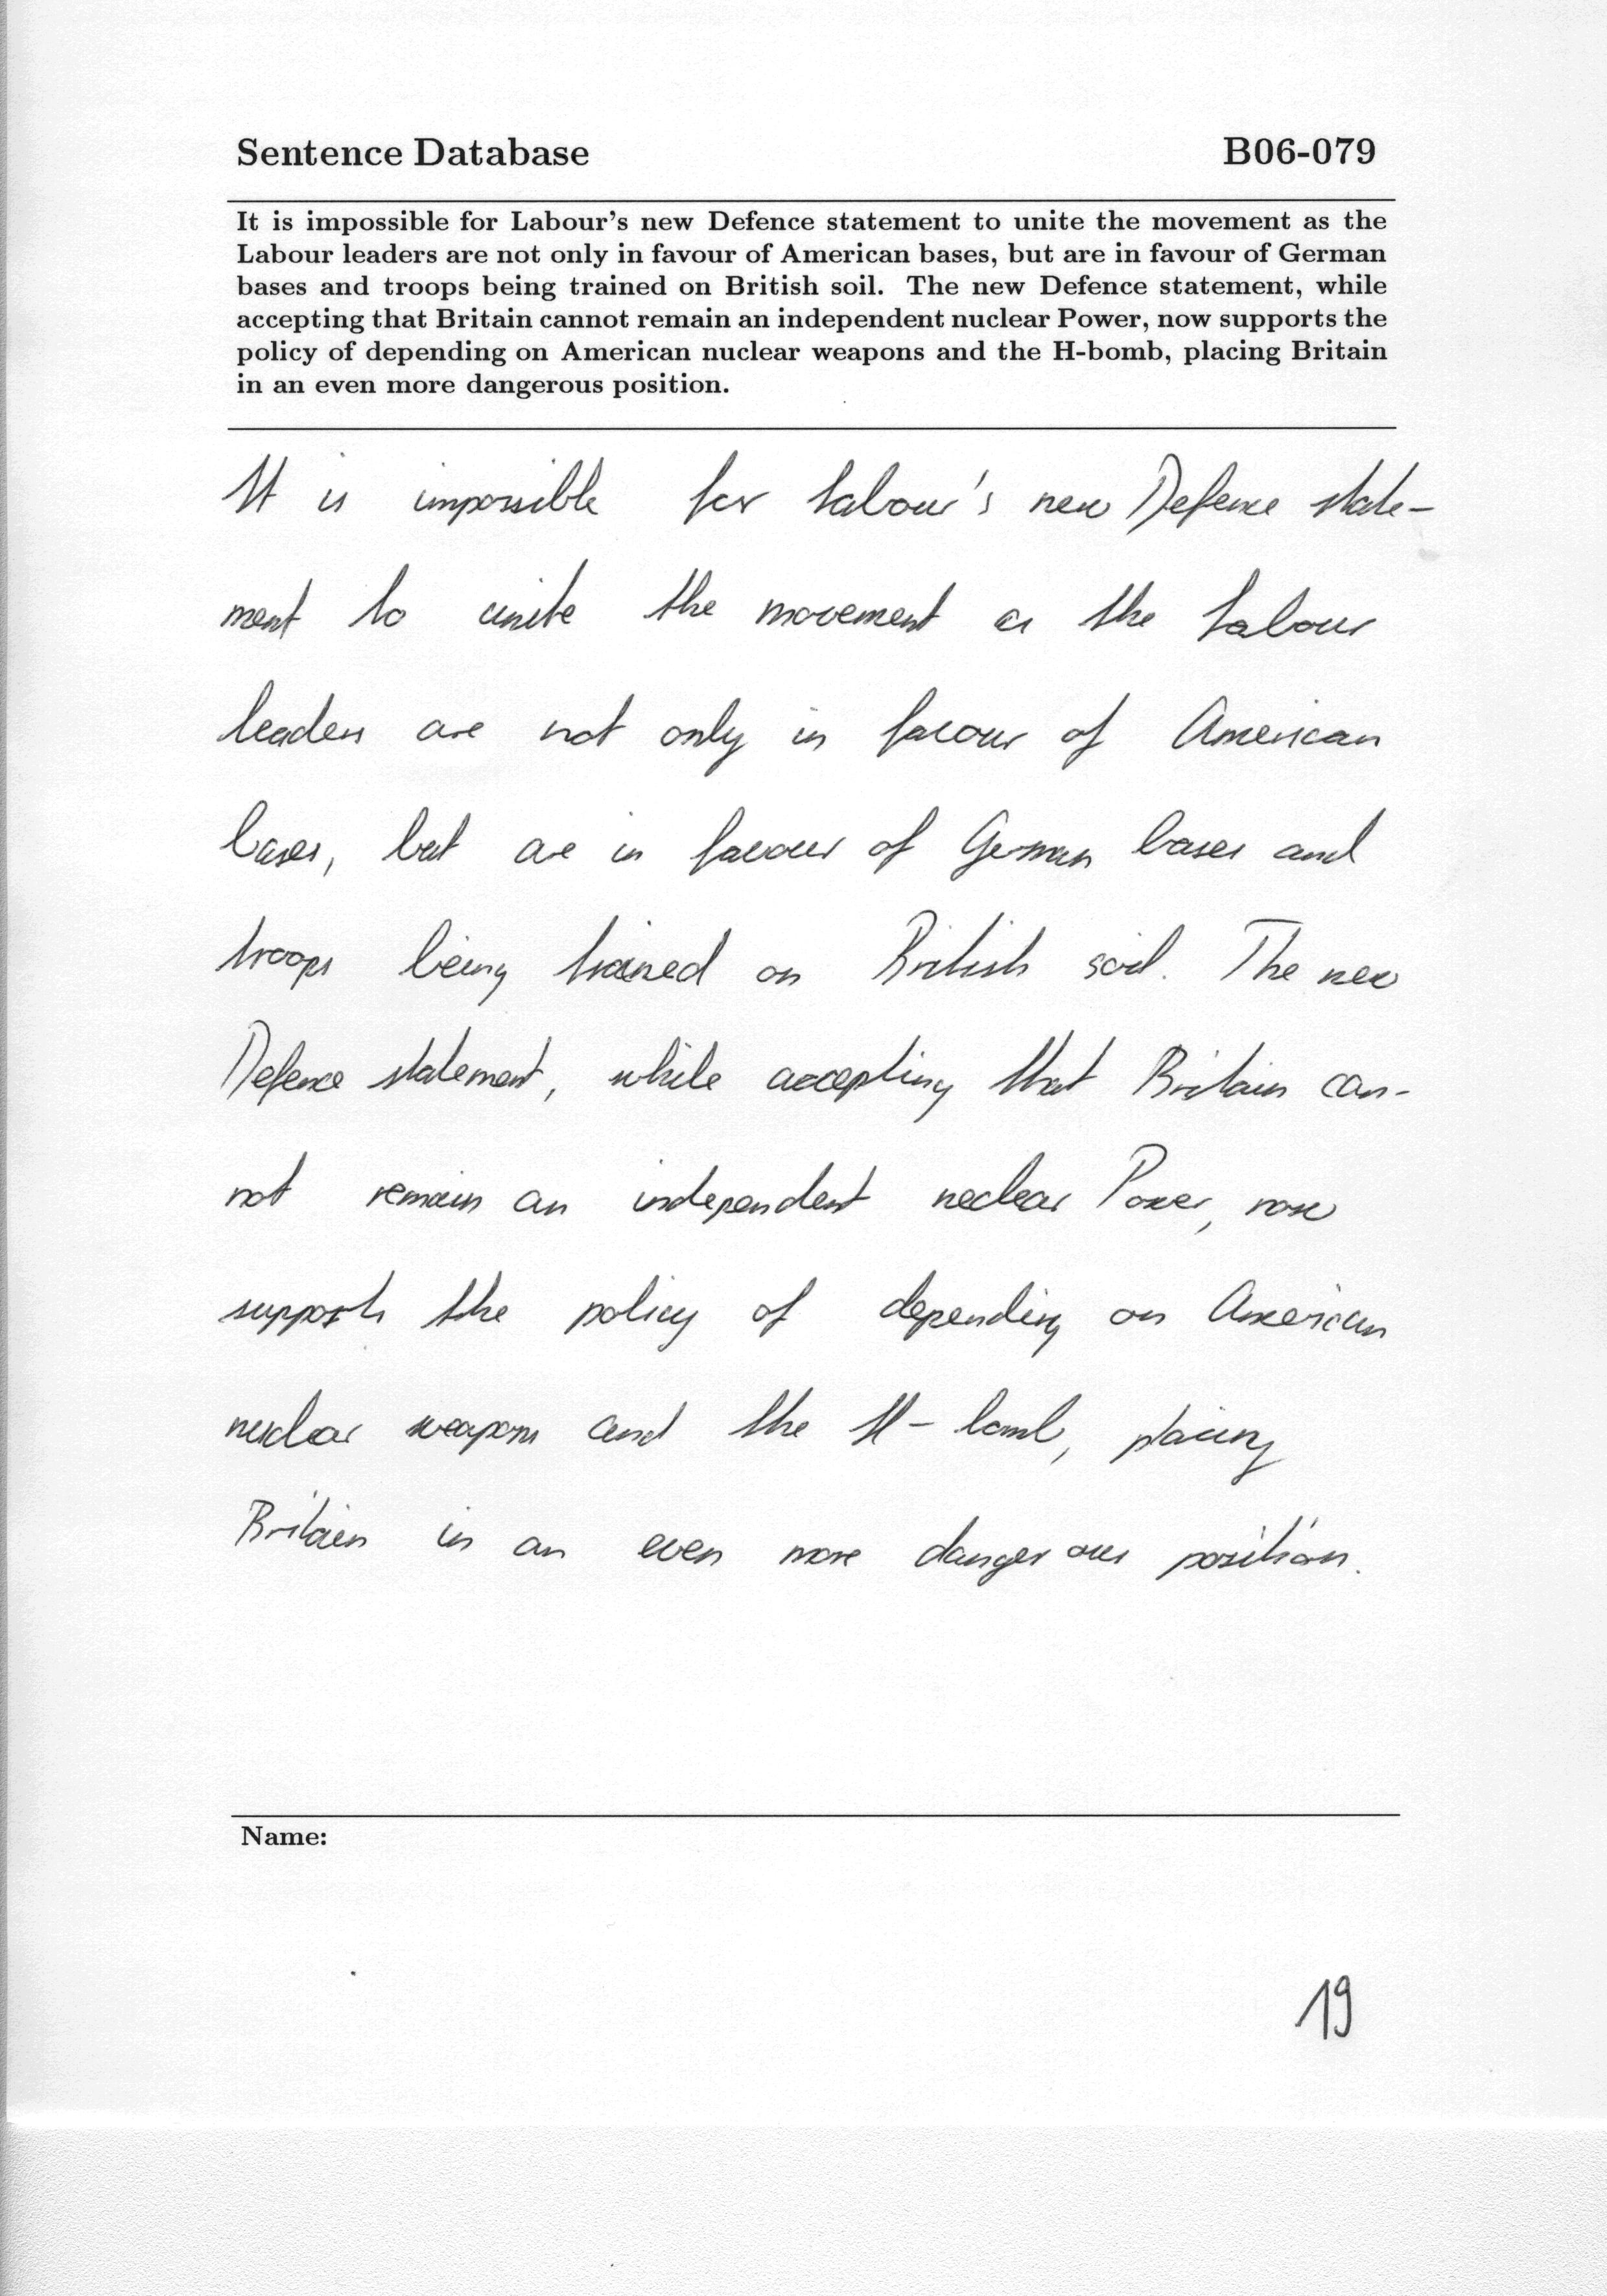 Sentence Database B06-079
It is impossible for Labour's new Defence statement to unite the movement as the
Labour leaders are not only in favour of American bases, but are in favour of German
bases and troops being trained on British soil. The new Defence statement, while
accepting that Britain cannot remain an independent nuclear Power, now supports the
policy of depending on American nuclear weapons and the H-bomb, placing Britain
in an even more dangerous position.
It is impossible for Labour's new Defence state-
ment to unite the movement as the Labour
leaders are not only in favour of American
bases, but are in favour of German bases and
troops being trained on British soil. The new
Defence statement, while accepting that Britain can-
not remain an independent neclear Power, now
supports the policy of depending on American
nuclear weapons and the H-bomb, placing
Britain in an even more dangerous position.
Name:
19